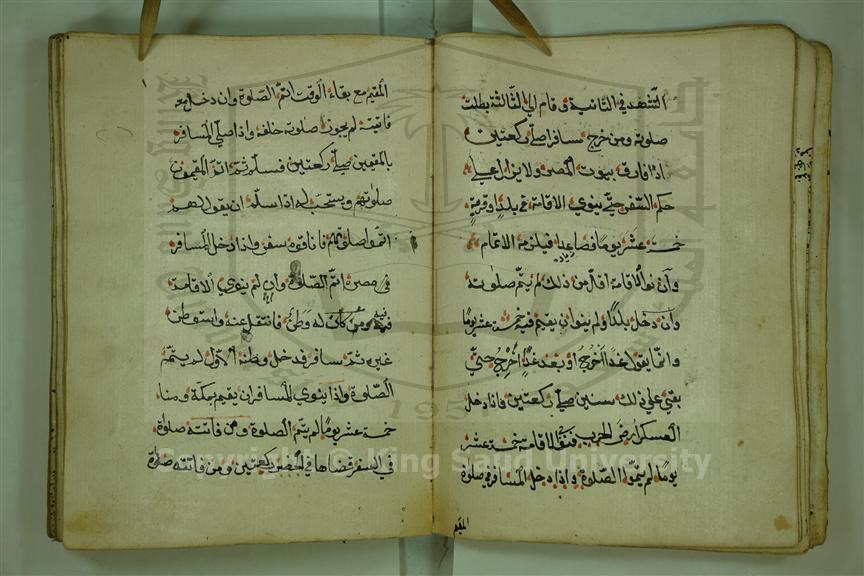 التشهد في الثانية وقام الي الثالثة بطلت
صلوته ومن خرج مسافرا صلي ركعتين
اذا فارق بيوت المصر ولا يزال علي
حكم السفر حتي ينوي الاقامة في بلد او قرية
خمسة عشر يوما فصاعدا فيلزمه الاتمام
وان نوا الاقامة اقل من ذلك لم يتم صلوته
وان دخل بلدا ولم ينو ان يقيم فيه خمسة عشر يوما
وانما يقول غدا اخرج او بعد غد اخرج حتي
بقي علي ذلك سنين صلي ركعتين فاذا دخل
العسكر ارض الحرب فنوا الاقامة خمسة عشر
يوما لم يتموا الصلوة واذا دخل المسافر في صلوة
المقيم
المقيم مع بقاء الوقت اتم الصلوة وان دخل معه
فائتة لم يجوز صلوته خلفه واذا صلي المسافر
بالمقيمين صلي ركعتين فسلم ثم اتم المقيمون
صلوتهم ويستحب له اذا سلم ان يقول لهم
اتموا صلوتكم فانا قوم سفر واذا دخل المسافر
في مصره اتم الصلوة وان لم ينوي الاقامة
فيه ومن كان له وطن فانتقل عنه واستوطن
غيره ثم سافر فدخل وطنه الاول لم يتم
الصلوة واذا ينوي المسافر ان يقيم بمكة ومنا
خمسة عشر يوما لم يتم الصلوة ومن فاتته صلوة
في السفر قضاها في الحضر ركعتين ومن فاتته صلوة
1957
Copyright © King Saud University